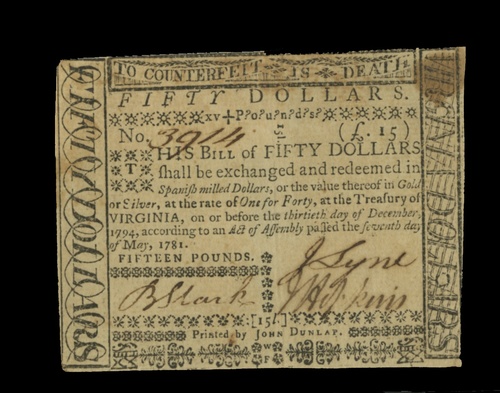 TO COUNTERFEIT IS DEATH.
FIFTY DOLLARS.
xv + P?o?u?n?d?s?
No. 3914 (£. 15)
THIS BILL of FIFTY DOLLARS
shall be exchanged and redeemed in
Spanish milled Dollars, or the value thereof in Gold
or Silver, at the rate of One for Forty, at the Treasury of
VIRGINIA, on or before the thirtieth day of December,
1794, according to an Act of Assembly passed the seventh day
of May, 1781.
FIFTEEN POUNDS.
J Lyne
B Stark
[15l.]
Printed by JOHN DUNLAP.
W
F
FIFTY DOLLARS